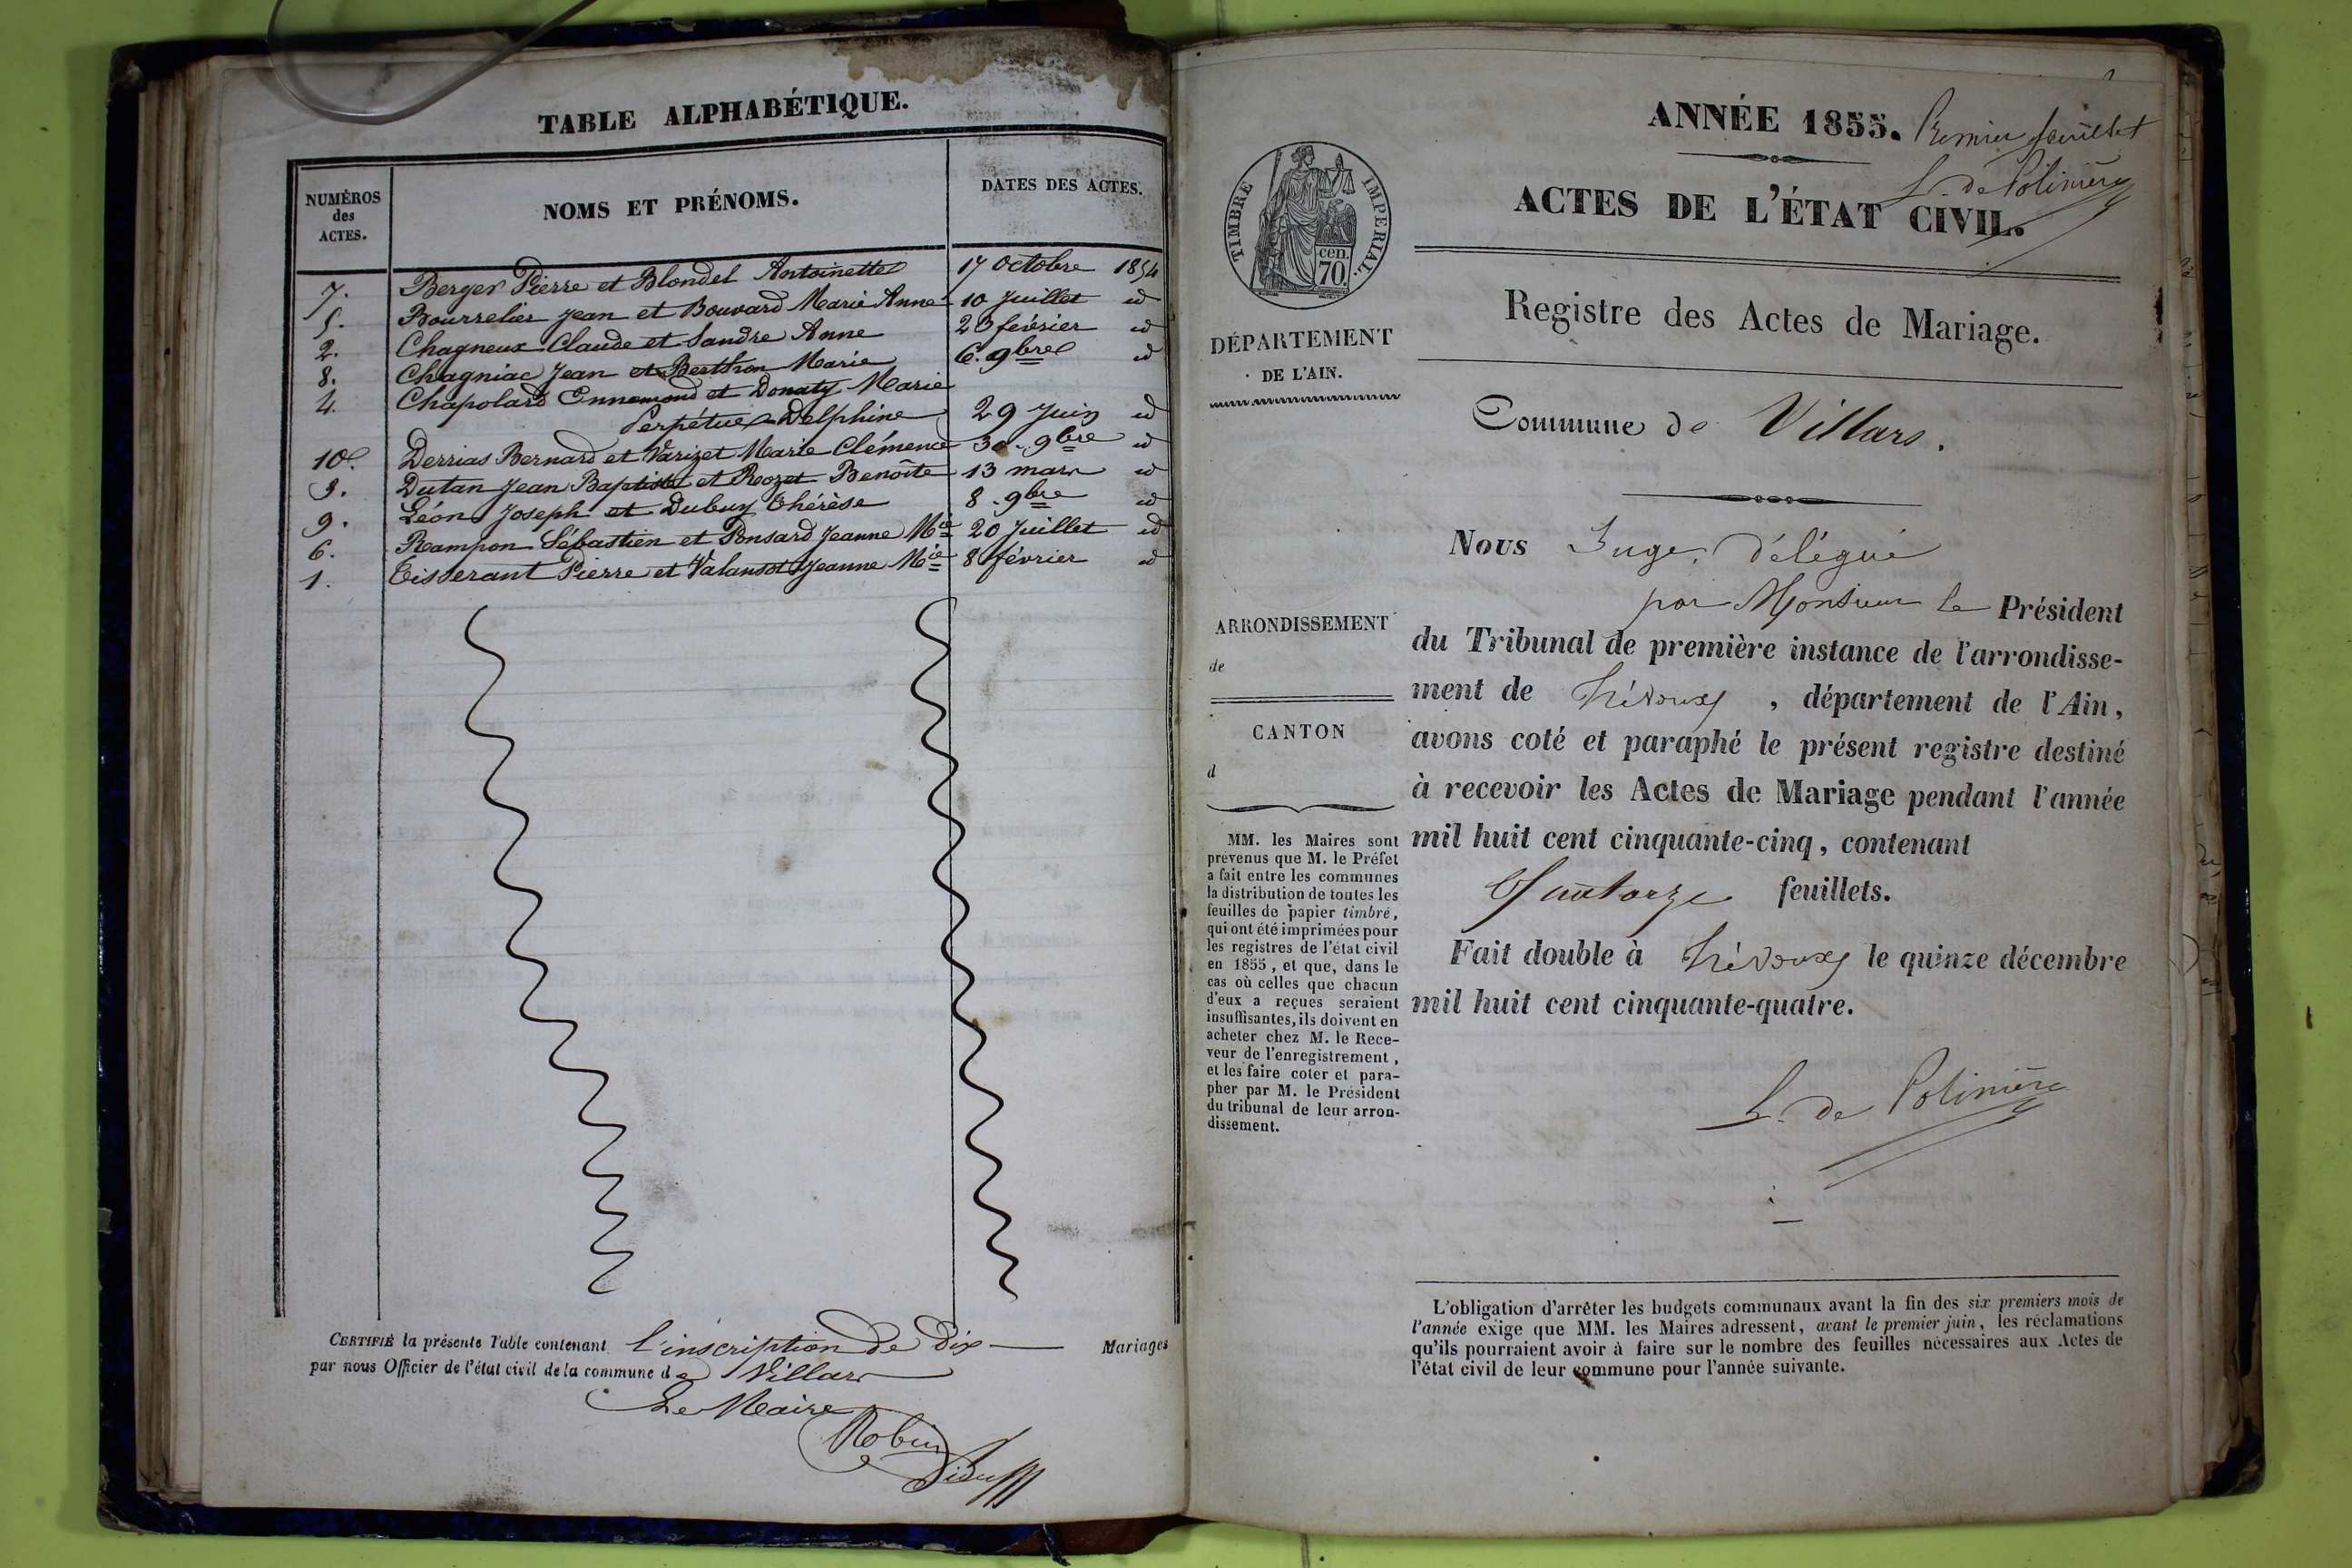 TABLE ALPHABÉTIQUE.
NUMÉROS
des
ACTES.
NOMS ET PRÉNOMS.
DATES DES ACTES.
7. Berger Pierre et Blondel Antoinette 17 Octobre 1854
5. Bourrelier Jean et Bouvard Marie Anne 10 Juillet id
2. Chagneux Claude et Sandre Anne 23 février id
8. Chagniac Jean et Berthon Marie 6. 9bre id
4. Chapolard Ennemond et Donaty Marie
Perpétue Delphine 29 Juin id
10. Derrias Bernard et Varizet Marie Clémence 30. 9bre id
3. Dutan Jean Baptiste et Rozet Benoîte 13 mars id
9. Léon Joseph et Dubuy Thérèse 8. 9bre id
6. Rampon Sébastien et Ponsard Jeanne Mie 20 Juillet id
1. Tisserant Pierre et Valansot Jeanne Mie 8 février id
CERTIFIÉ la présente Table contenant l'inscription de Dix Mariages
par nous Officier de l'état civil de la commune de Villars
Le Maire
Robin
ANNÉE 1855. Premier feuillet
L. de Polinière
ACTES DE L'ÉTAT CIVIL.
TIMBRE IMPERIAL.
cen.
70.
Registre des Actes de Mariage.
DÉPARTEMENT
DE L'AIN.
Commune de Villars.
Nous Juge, Délégué
par Monsieur le Président
ARRONDISSEMENT
de
CANTON
d
du Tribunal de première instance de l'arrondisse-
ment de Trévoux, département de l'Ain,
avons coté et paraphé le présent registre destiné
à recevoir les Actes de Mariage pendant l'année
mil huit cent cinquante-cinq, contenant
Quatorze feuillets.
Fait double à Trévoux le quinze décembre
mil huit cent cinquante-quatre.
L. de Polinière
MM. les Maires sont
prévenus que M. le Préfet
a fait entre les communes
la distribution de toutes les
feuilles de papier timbré,
qui ont été imprimées pour
les registres de l'état civil
en 1855, et que, dans le
cas où celles que chacun
d'eux a reçues seraient
insuffisantes, ils doivent en
acheter chez M. le Rece-
veur de l'enregistrement,
et les faire coter et para-
pher par M. le Président
du tribunal de leur arron-
dissement.
L'obligation d'arrêter les budgets communaux avant la fin des six premiers mois de
l'année exige que MM. les Maires adressent, avant le premier juin, les réclamations
qu'ils pourraient avoir à faire sur le nombre des feuilles nécessaires aux Actes de
l'état civil de leur commune pour l'année suivante.